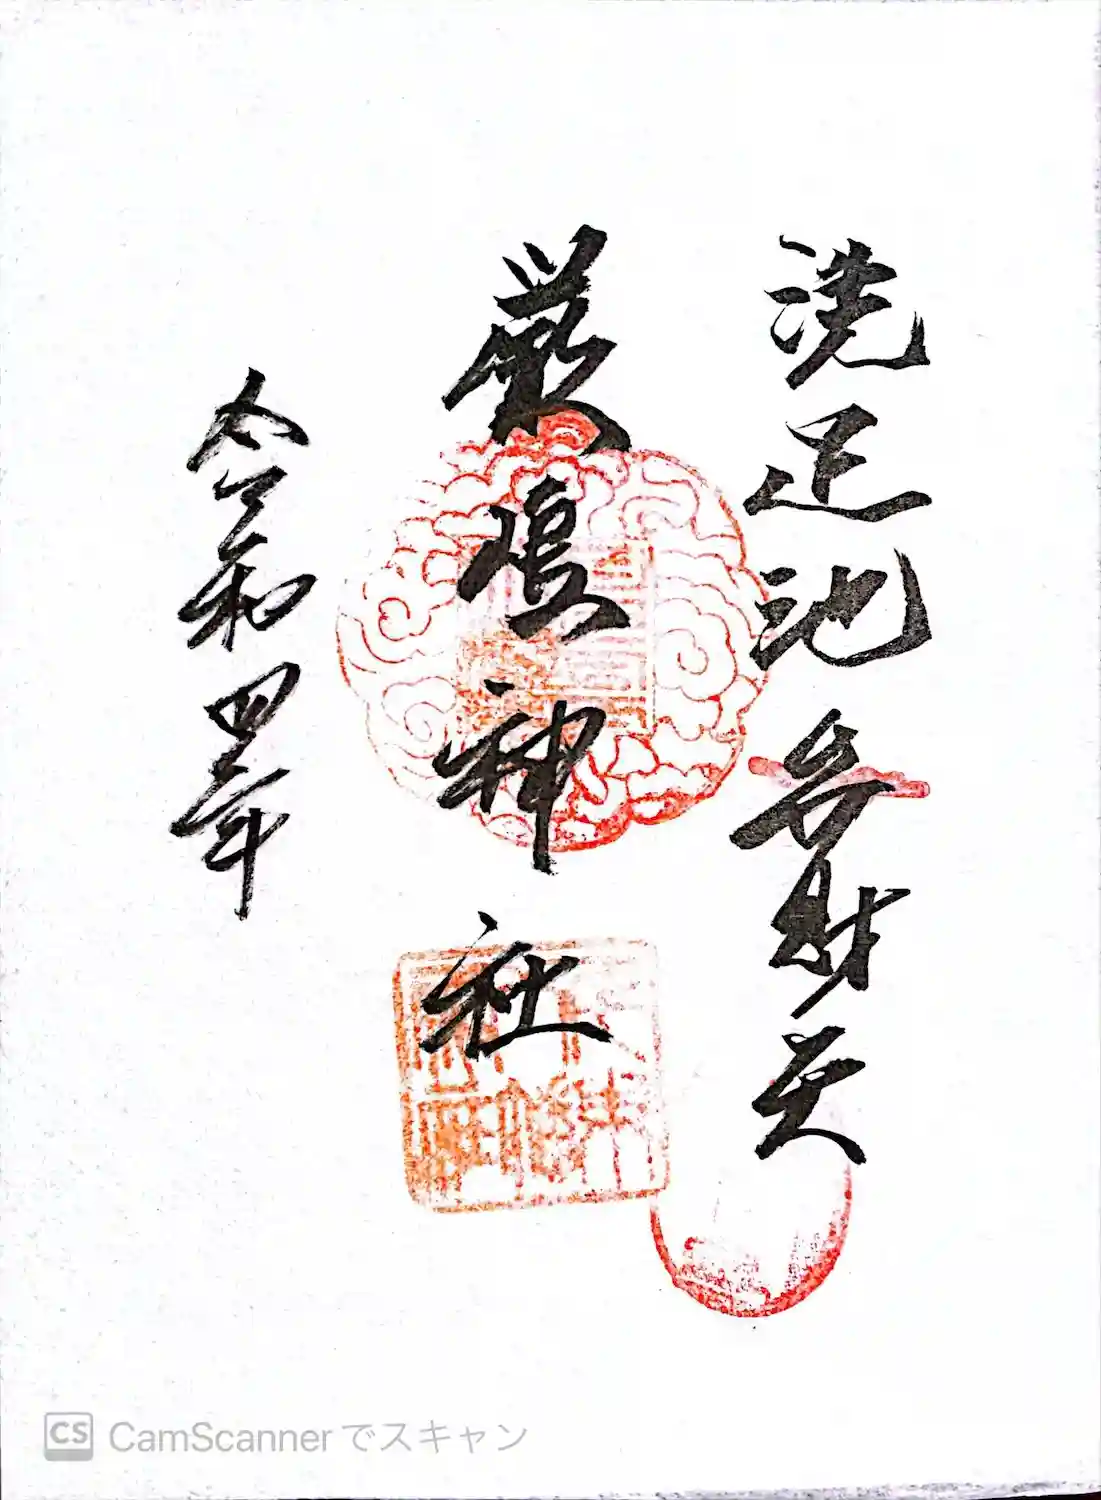 洗足池弁財天
厳嶋神社
令和四年
CS CamScannerでスキャン